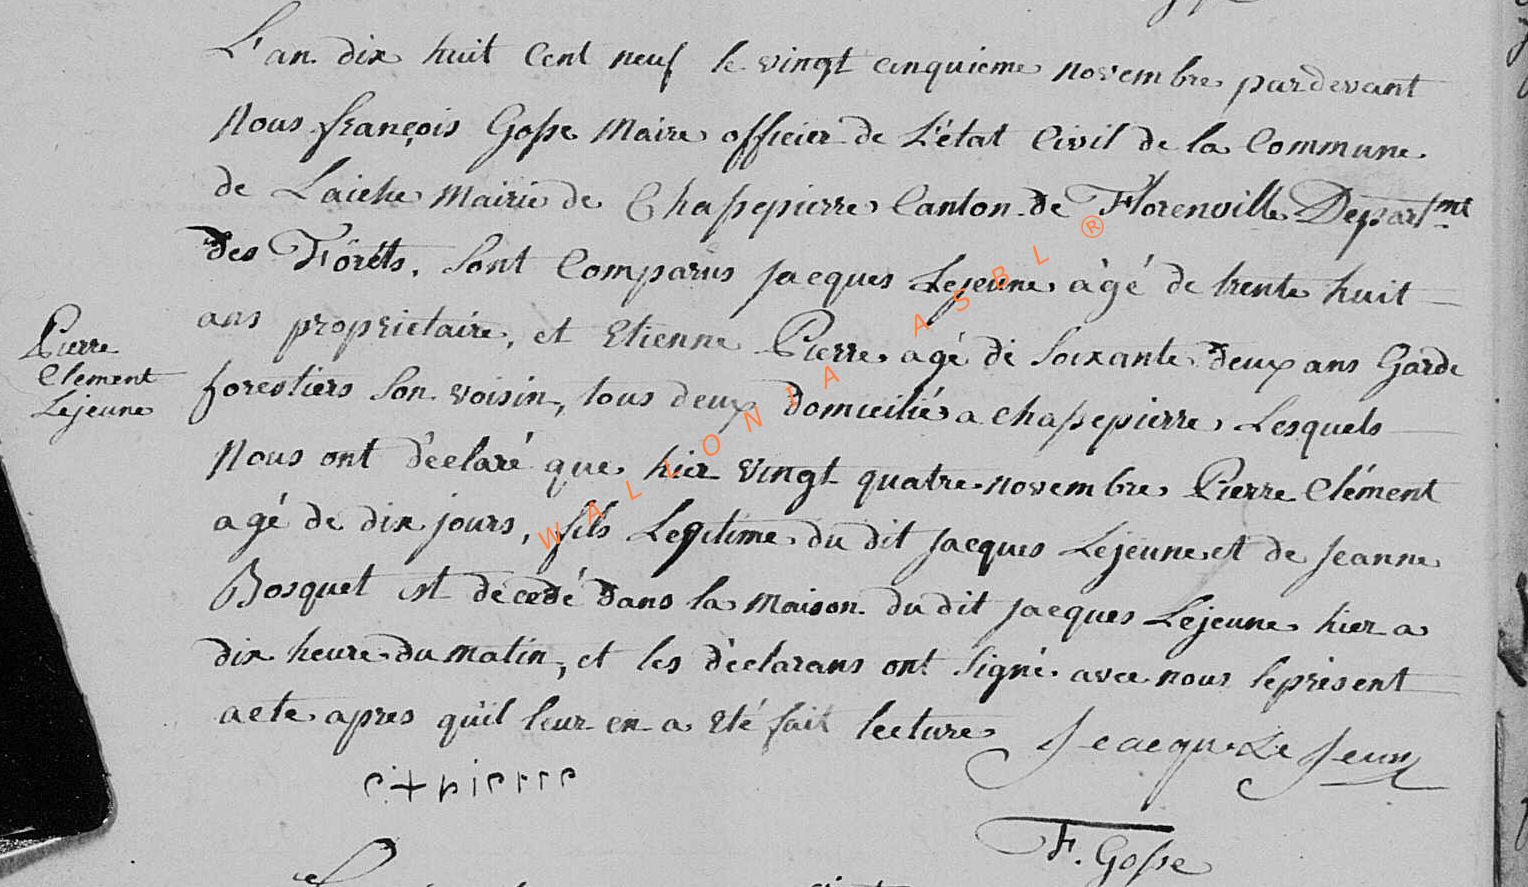 L'an dix huit Cent neuf le vingt cinquieme novembre pardevant
Nous françois Gosse Maire officier de L'état Civil de la Commune
de Laiche Mairie de Chassepierre Canton de Florenville Départmt
des Forêts, Sont Comparus Jacques Lejeune âgé de trente huit
ans propriétaire, et Etienne Pierre agé de Soixante deux ans Garde
forestiers Son voisin, tous deux domiciliés a chassepierre, Lesquels
Nous ont déclaré que hier vingt quatre novembre Pierre Clément
agé de dix jours, fils Legitime du dit Jacques Lejeune et de Jeanne
Bosquet est décedé dans la Maison du dit Jacques Lejeune hier a
dix heure du matin, et les déclarans ont Signé avec nous le présent
acte apres qu'il leur en a été fait lecture
Pierre
Clement
Lejeune
Jeacque Le Jeun
et pierre
F. Gosse
WALLONIA ASBL ®